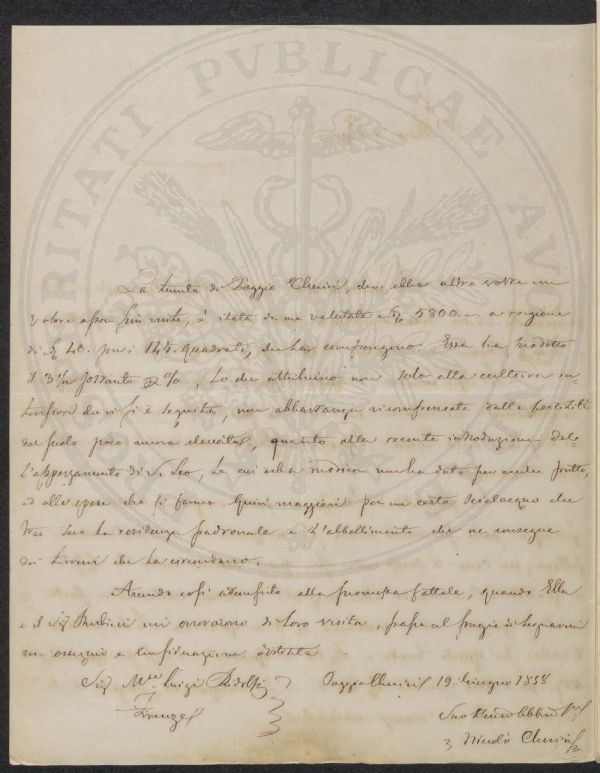 PVBLICAE
La tenuta di Poggio Cherici, che ebbe altre volte un
valore assai più mite, è stata da me valutata a £ 5800. a ragione
di £ 40. per i 145. quadrati, che la compongono. Essa ha prodotto
il 3¼ per %, Lo che attribuisco non solo alla cultura in-
tensiva che vi si è seguita, non abbastanza ricompensata dalla fertilità
del suolo poco ancora, quanto alla recente introduzione del-
L'appezzamento di S. Leo, la cui erba medica non ha dato per anche frutto,
ed alle spese che si fanno quivi maggiori per un certo che
trae seco la residenza padronale e l'abbellimento che ne consegue
dei terreni che la circondano.
Avendo così adempito alla promessa fattale, quando Ella
e il Sig mi onorarono di Loro visita, passo al pregio di segnarmi
con ossequio e considerazione distinta
Sig Mse Luigi Ridolfi
Firenze
19 Giugno 1858
Suo
Niccolò